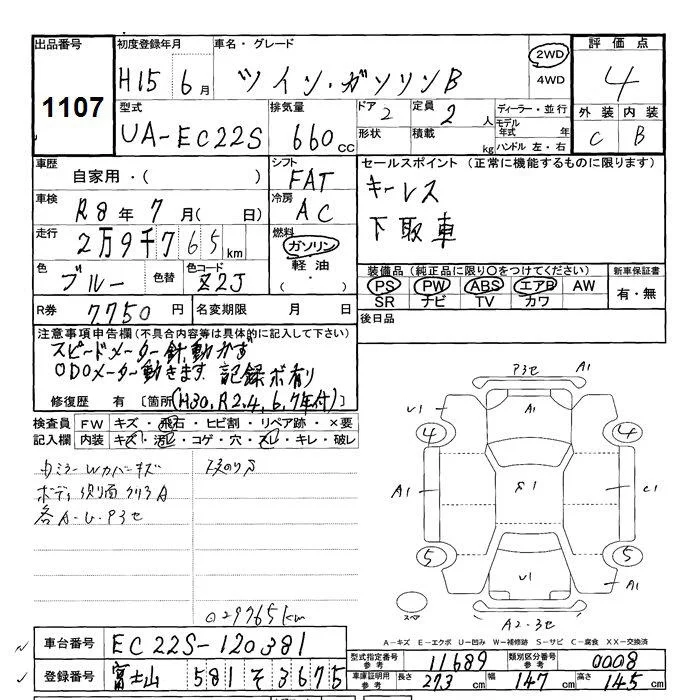 出品番号 初度登録年月 車名・グレード 評価点
1107 H15年6月 ツイン・ガソリンB 2WD 4WD 4
外装 内装
C B
型式 排気量 ドア 定員 ディーラー・並行
UA-EC22S 660cc 2 2人 モデル年式 年
形状 積載 kg ハンドル 左・右
車歴 シフト セールスポイント (正常に機能するものに限ります)
自家用・( ) FAT キーレス
車検 冷房
R8年7月( 日) AC 下取車
走行 燃料
2万9千765km ガソリン
軽油
色 色替 色コード 装備品(純正品に限り○をつけてください) 新車保証書
ブルー Z2J PS PW ABS エアB AW 有・無
SR ナビ TV カワ
R券 7750円 名変期限 月 日 後日品
注意事項申告欄(不具合内容等は具体的に記入して下さい)
スピードメーター針動かず
ODOメーター動きます 記録ボ有り
修復歴 有 [箇所 (H30,R2,4,6,7年付)
検査員 FW キズ・飛石・ヒビ割・リペア跡・×要
記入欄 内装 キズ・汚レ・コゲ・穴・スレ・キレ・破レ
Wカバーキズ
ボディ
各A-U-Pヨセ
○29765km
Pヨセ A1
U1 A1
4 4
A1 C1
5 5
U1 A1
スペア A2-ヨセ
A-キズ E-エクボ U-凹み W-補修跡 S-サビ C-腐食 XX-交換済
車台番号 EC22S-120381
型式指定番号 参考 11689 類別区分番号 参考 0008
登録番号 富士山 581 そ 3675
車庫証明用 参考 長さ 273cm 幅 147cm 高さ 145cm